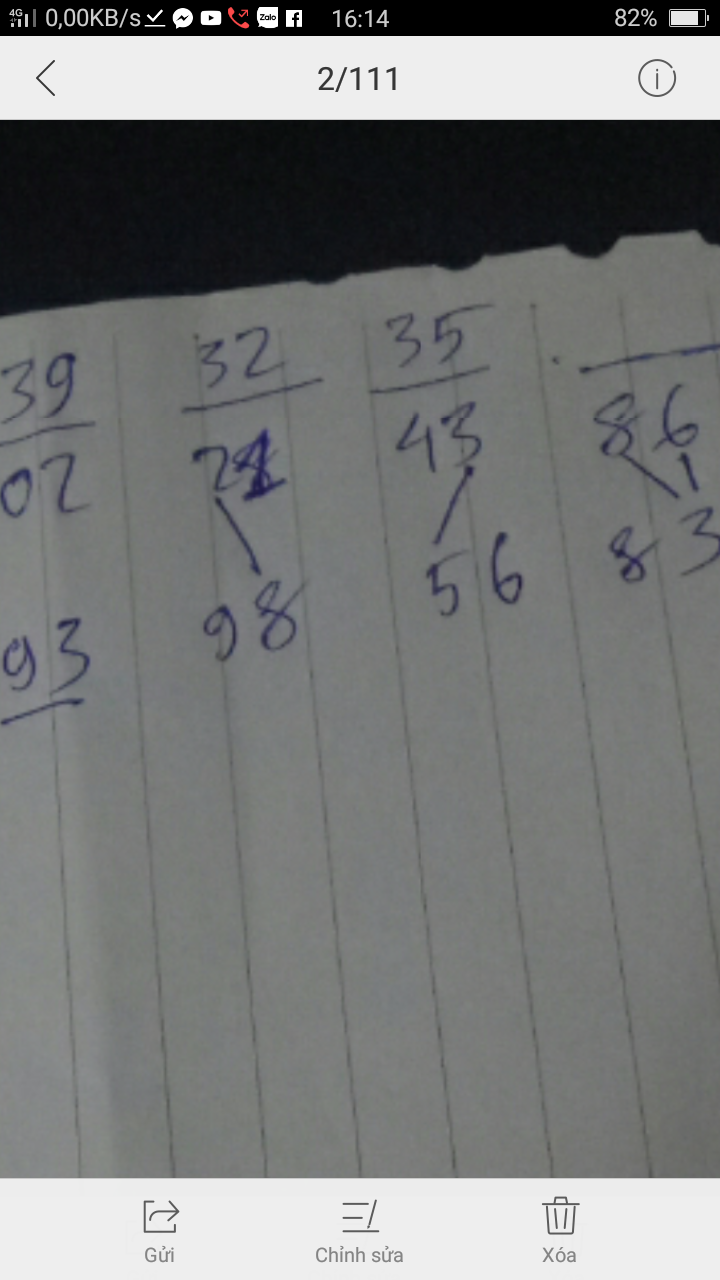 4G 0,00KB/s Zalo 16:14 82%
2/111
39 32 35
02 43 86
93 98 56 83
Gửi Chỉnh sửa Xóa